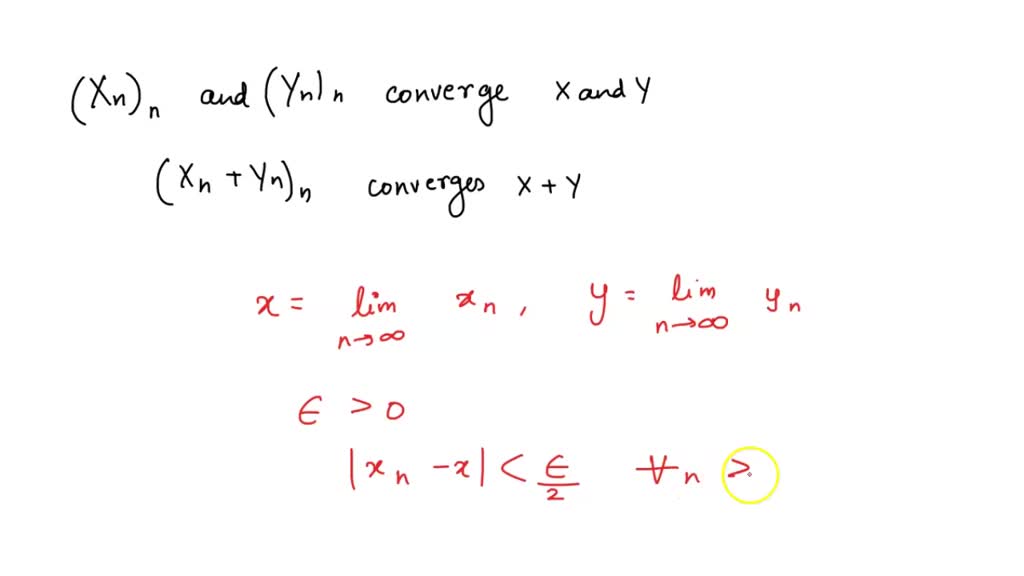 (Xn)n and (Yn)n converge X and Y
(Xn + Yn)n converges X + Y
x = lim n→∞ xn , y = lim n→∞ yn
∈ > 0
|xn - x| < ∈/2 ∀n >